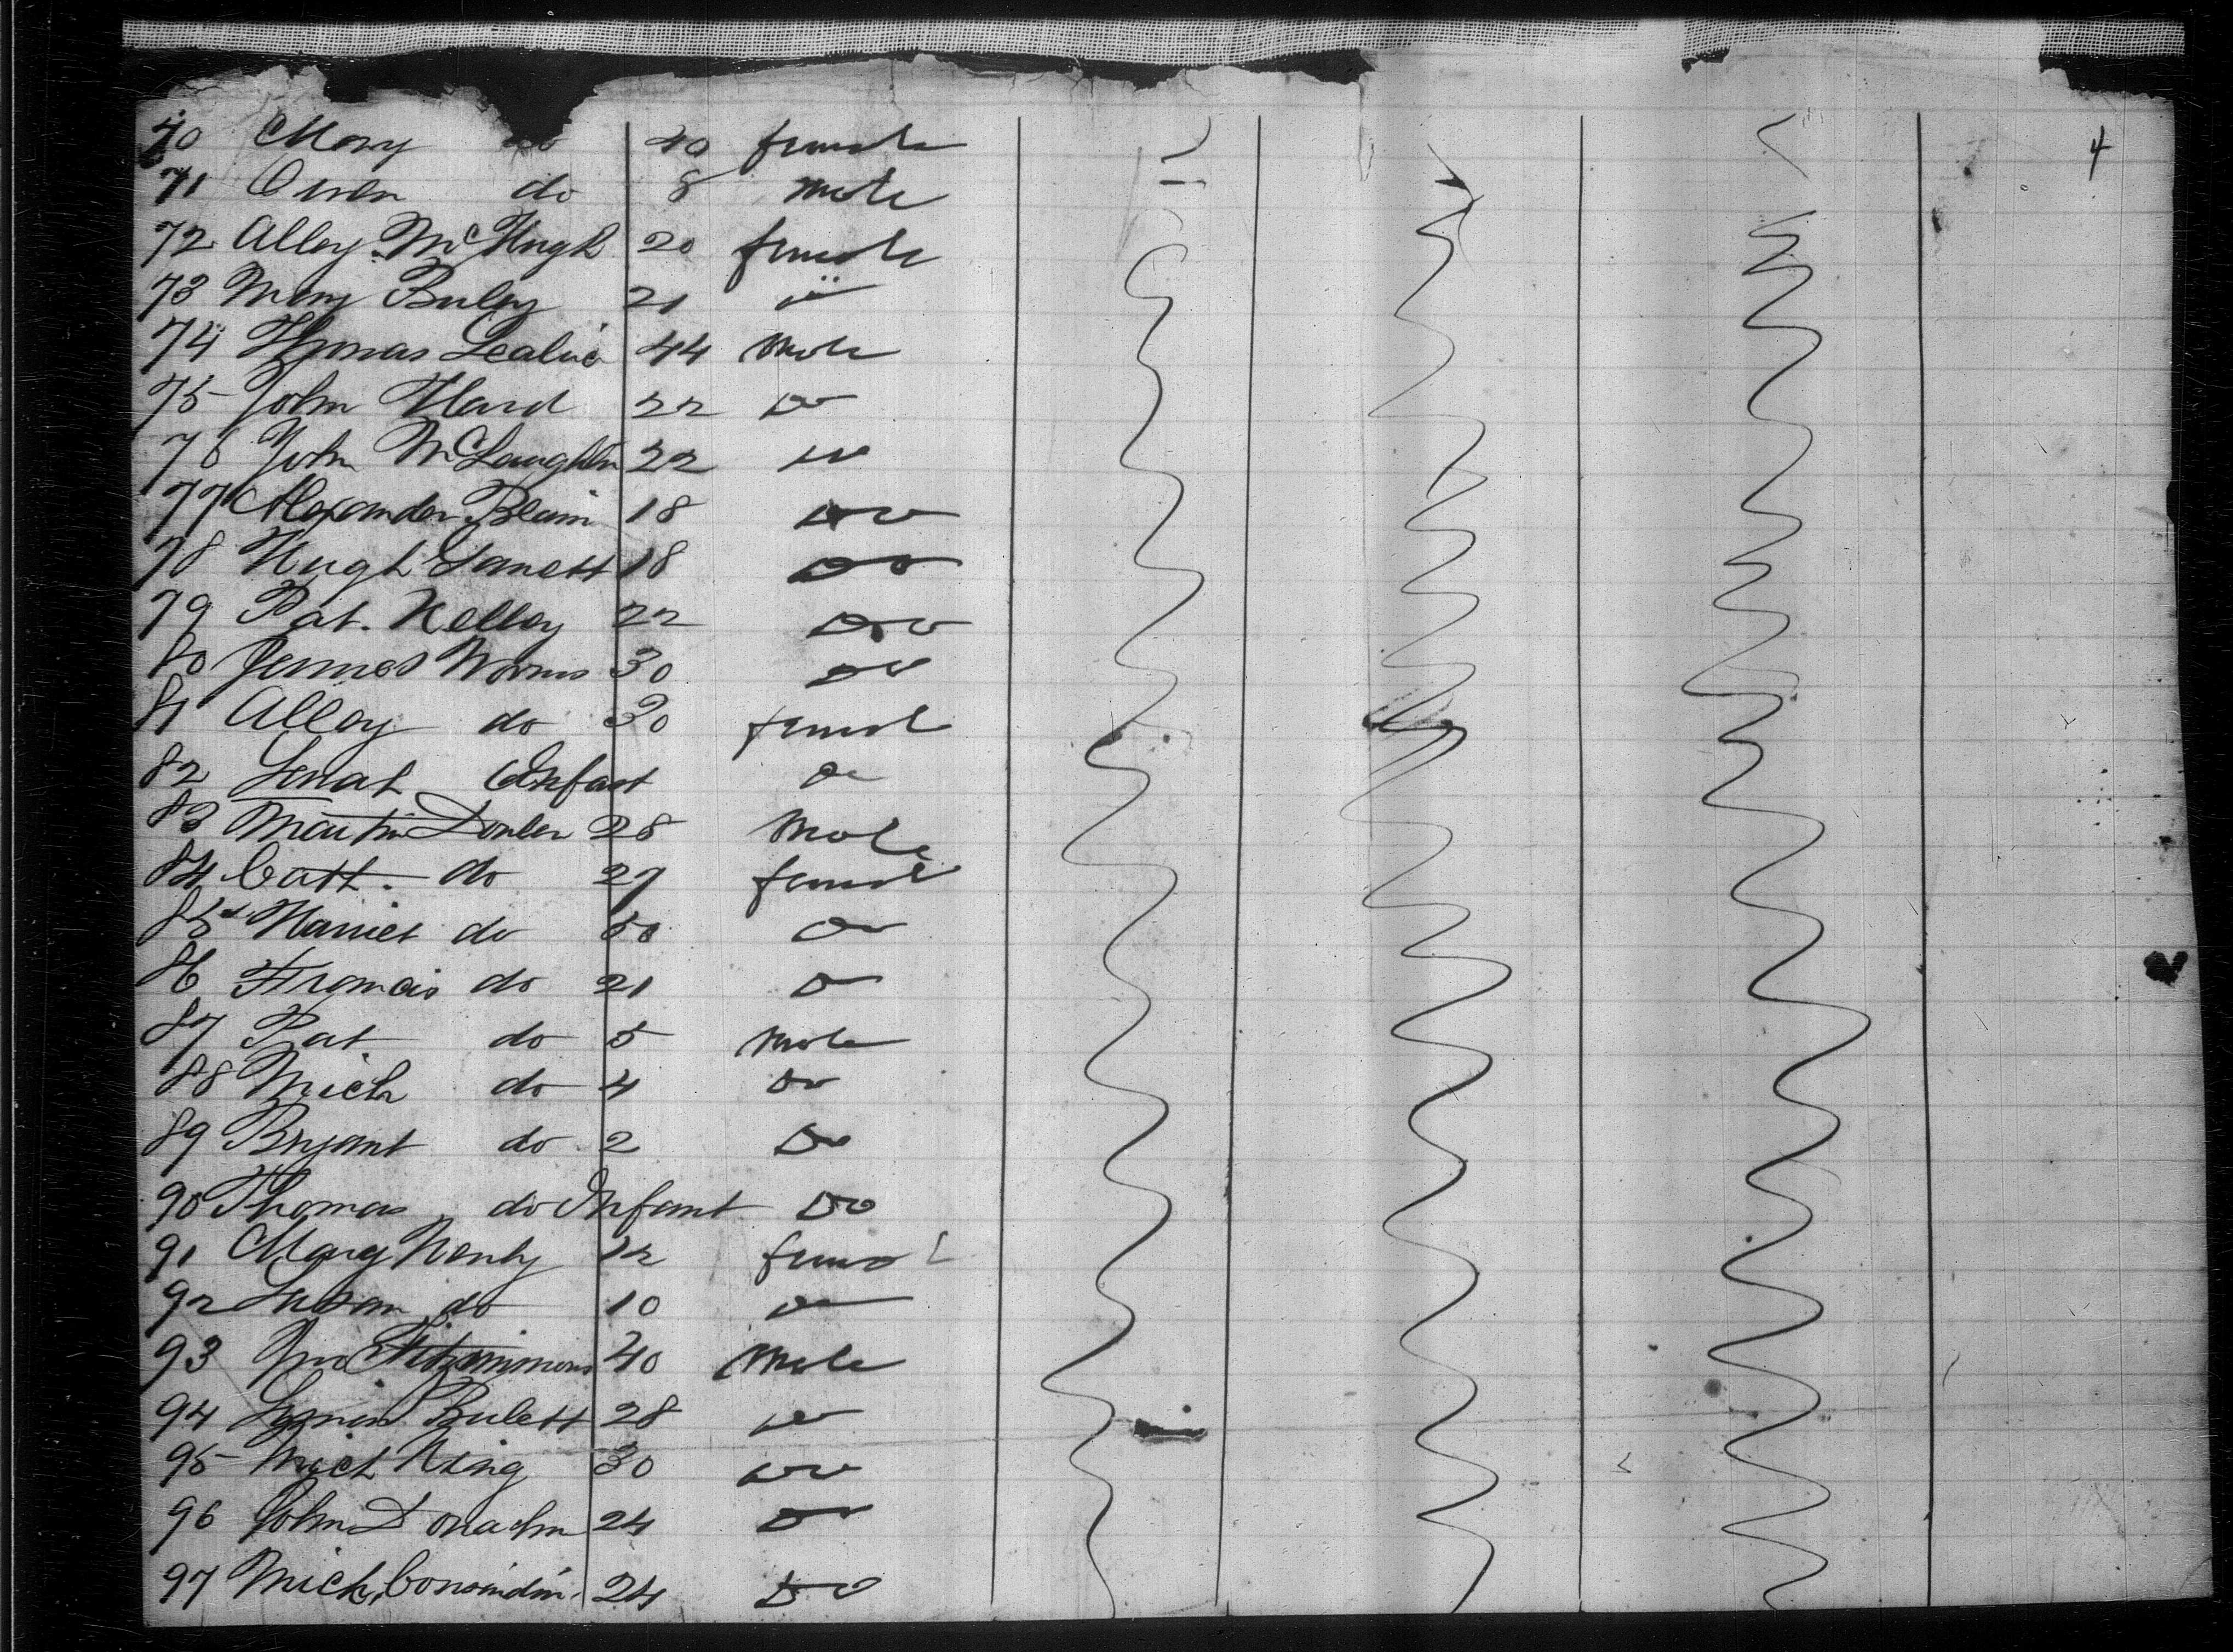 4
70 Mary do 40 female
71 Owen do 8 male
72 Alley McHugh 20 female
73 Mary 21 "
74 Thomas 44 male
75 John Hand 22 do
76 John McLaughlin 22 do
77 Alexander Blain 18 do
78 Hugh 18 do
79 Pat. Kelley 22 do
80 James Norris 30 do
81 Alley do 30 femal
82 Infant do
83 Martin 28 male
84 Catt. do 27 femal
85 Harriet do 50 do
86 Francis do 21 do
87 Pat do 5 male
88 Mich do 4 do
89 Bryant do 2 do
90 Thomas do Infant do
91 Mary 12 femal
92 Susan do 10 do
93 Jno Fitzimmons 40 male
94 28 do
95 Mich King 30 do
96 John 24 do
97 Mich. 24 do